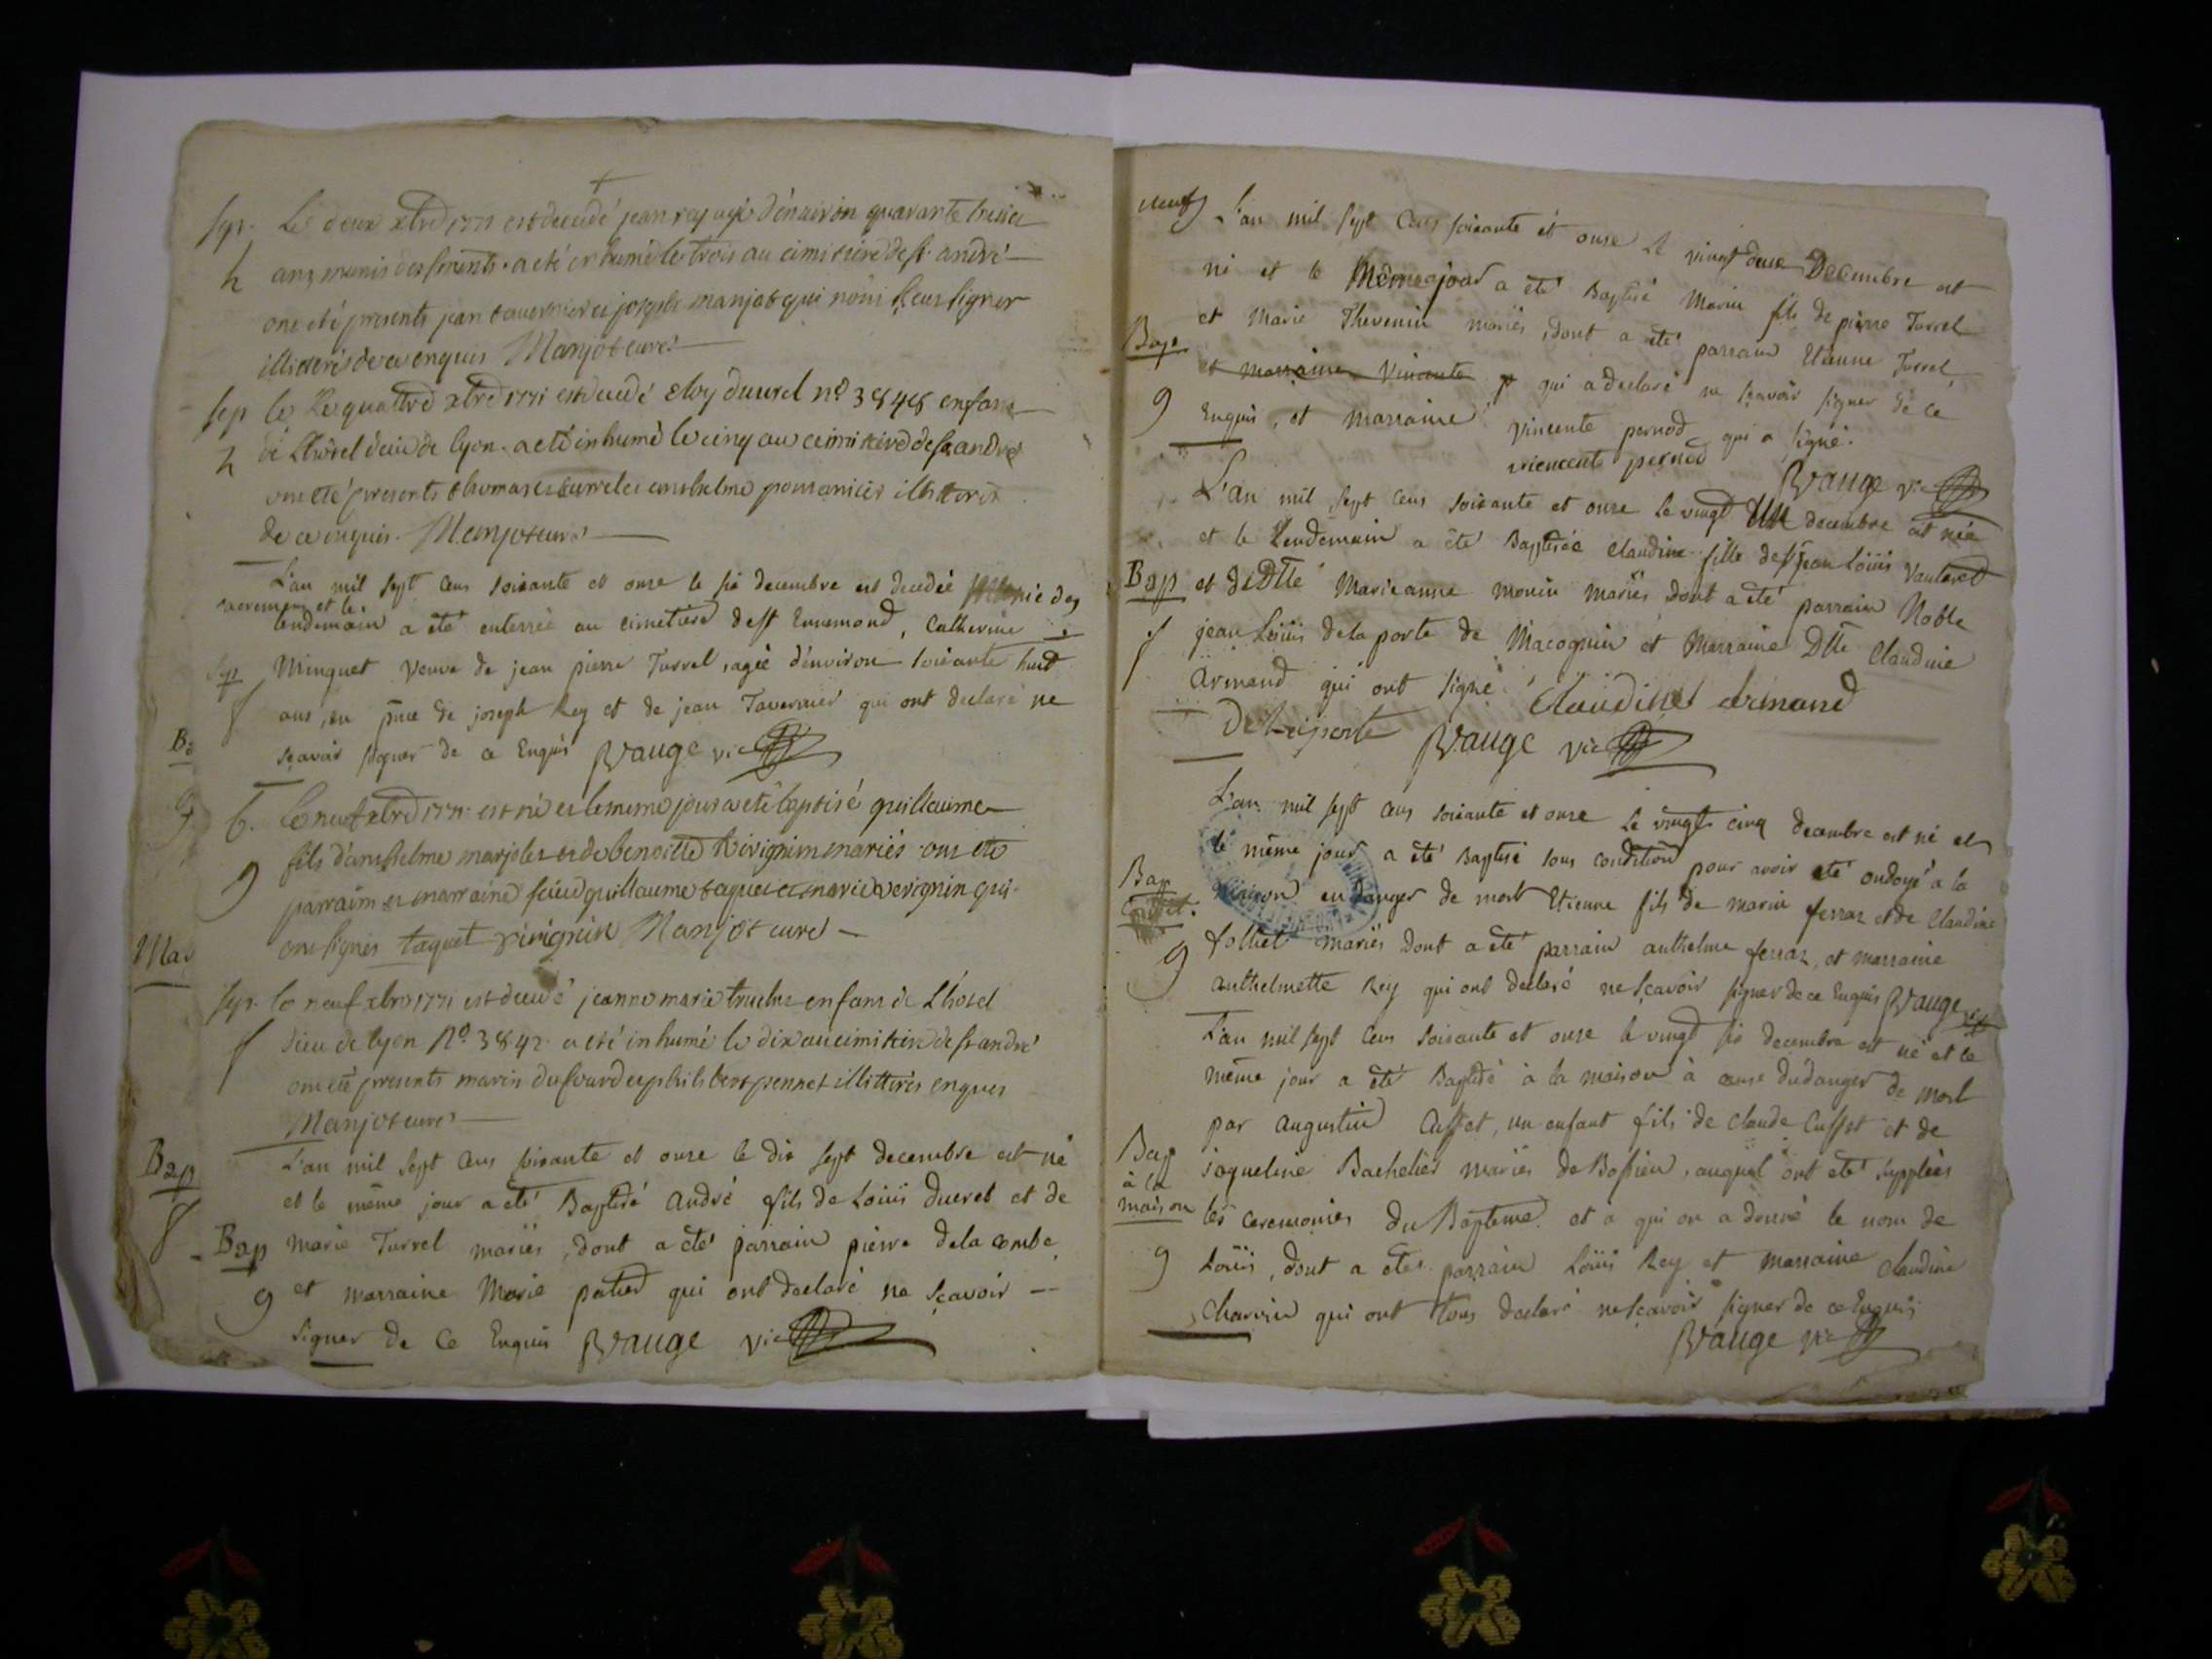 Sep. Le deux xbre 1771 est decedé jean rey agé d'enuiron quarante
h ans munis des srments. a eté inhumé le trois au cimitiere de st. andré
ont eté presents jean tavernier et joseph manjot qui n'ont sceus signer
illiterés de ce enquis Manjot curé
Sep le Le quattre xbre 1771 est decedé eloy duurel n° 3848 enfant
h de Lhotel dieu de lyon. a eté inhumé le cinq au cimitiere de st andré
ont eté presents thomas et anthelme illiterés
de ce enquis. Manjot curé
L'an mil sept cens soixante et onze le six decembre est decedée munie des
sacremens et le
lendemain a été enterrée au cimetiere de st Ennemond, Catherine
Sep Minquet veuve de jean pierre Turrel, agée d'environ soixante huit
f ans, en pnce de joseph Rey et de jean Tavernier qui ont declaré ne
Ba
sçavoir signer de ce Enquis BVauge vic
g b. le neuf xbre 1771 est né et le meme jour a eté baptisé guillaume
fils d'anthelme marjolet et de benoitte virignin mariés ont eté
g parrain et marraine sieur guillaume taquet et marie verignin qui
ont signés taquet virignin Manjot curé
Mar
Sep. le neuf xbre 1771 est decedé jeanne marie enfant de Lhotel
f dieu de lyon N° 3842 a eté inhumé le dix au cimitiere de st andré
ont eté presents marin dufour et philibert pernet illitterés enquis
Manjot curé
Bap L'an mil sept cens soixante et onze le dix sept decembre est né
f et le même jour a eté Baptisé André fils de Loüis Ducret et de
Bap Marie Turrel mariés, dont a eté parrain pierre dela combe
g et marraine Marie patier qui ont declaré ne sçavoir
signer de Ce Enquis BVauge vic
neuf L'an mil sept Cens soixante et onze Le vingt deux Decembre est
né et le Même jour a été Baptisé Marin fils de pierre Turrel
Bap et Marie Thevenin mariés, dont a été parrain Etienne Turrel
et marraine Vincente p qui a declaré ne sçavoir signer de ce
g Enquis, et Marraine Vincente pernod qui a signé.
viencent pernod BVauge vic
L'an mil sept Cens soixante et onze le vingt un decembre est née
et le Lendemain a été Baptisée Claudine fille de sr jean Loüis Vauteret
Bap et de Dlle Marieanne monin mariés, dont a été parrain Noble
f jean Loüis dela porte de Macognin et Marraine Dlle Claudine
Armand qui ont signé. Claudine armand
De Laporte BVauge vic
L'an mil sept cens soixante et onze Le vingt cinq decembre est né et
le même jour a été Baptisé sous condition pour avoir eté ondoyé a la
Bap maison en danger de mort Etienne fils de marin ferraz et de Claudine
g follet mariés Dont a été parrain anthelme ferraz, et marraine
anthelmette Rey qui ont declaré ne sçavoir signer de ce Enquis BVauge vic
L'an mil sept Cens soixante et onze le vingt six decembre est né et le
même jour a été Baptisé à la maison à cause du danger de mort
par Augustin Cusset, un enfant fils de Claude Cusset et de
Bap jaqueline Bachelier mariés de Bossieu, auquel ont été supplées
à la
maison les ceremonies du Bapteme. et a qui on a donné le nom de
g Loüis, dont a etés parrain Loüis Rey et marraine Claudine
Charvin qui ont tous declaré ne sçavoir signer de ce Enquis
BVauge vic